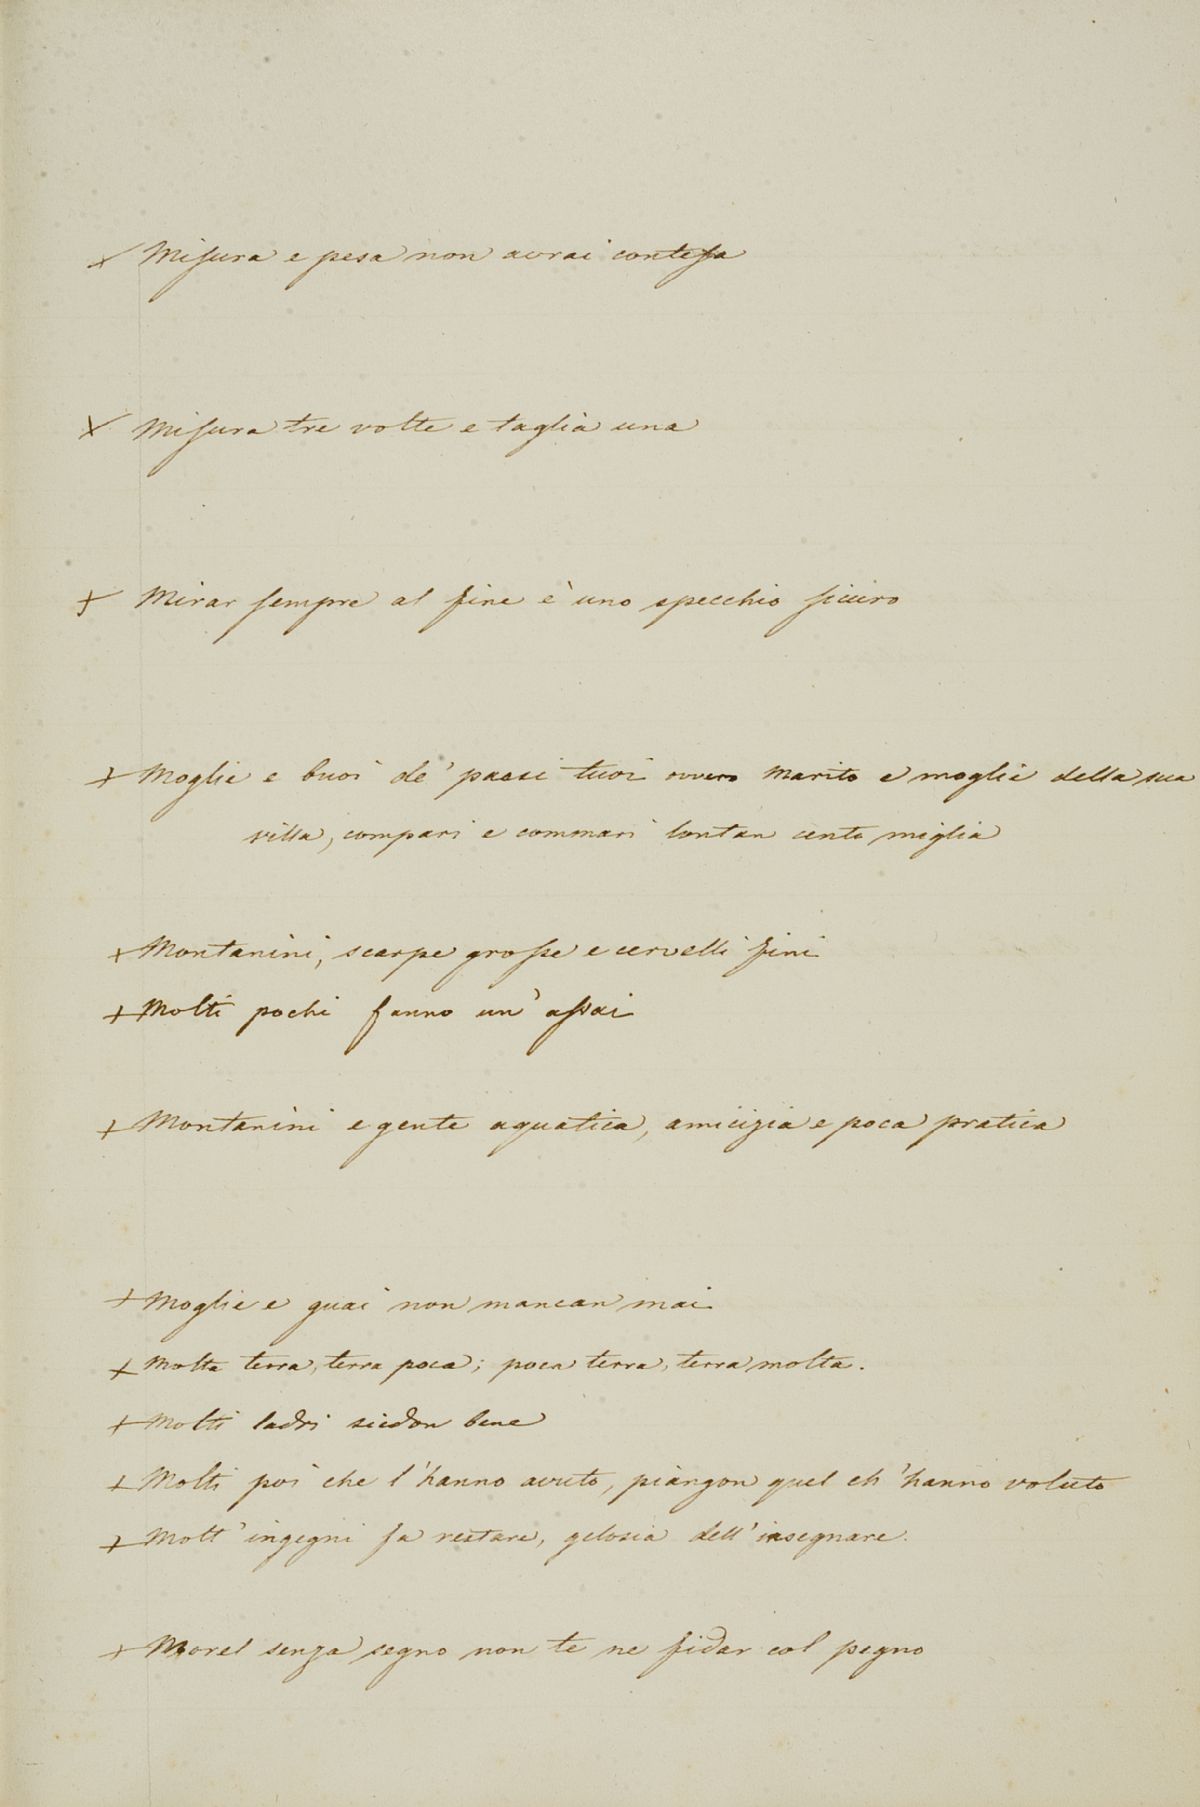 × Misura e pesa non avrai contesa
× Misura tre volte e taglia una
+ Mirar sempre al fine è uno specchio sicuro
+ Moglie e buoi de' paesi tuoi ovvero marito e moglie della sua
villa, compari e commari lontan cento miglia
+ Montanini, scarpe grosse e cervelli fini
+ Molti pochi fanno un' assai
+ Montanini e gente aquatica, amicizia e poca pratica
+ Moglie e guai non mancan mai
+ Molta terra, terra poca; poca terra, terra molta.
+ Molti ladri siedon bene
+ Molti poi che l'hanno avuto, piangon quel ch'hanno voluto
+ Molt' ingegni fa restare, gelosia dell' insegnare.
+ Morel senza segno non te ne fidar col pegno